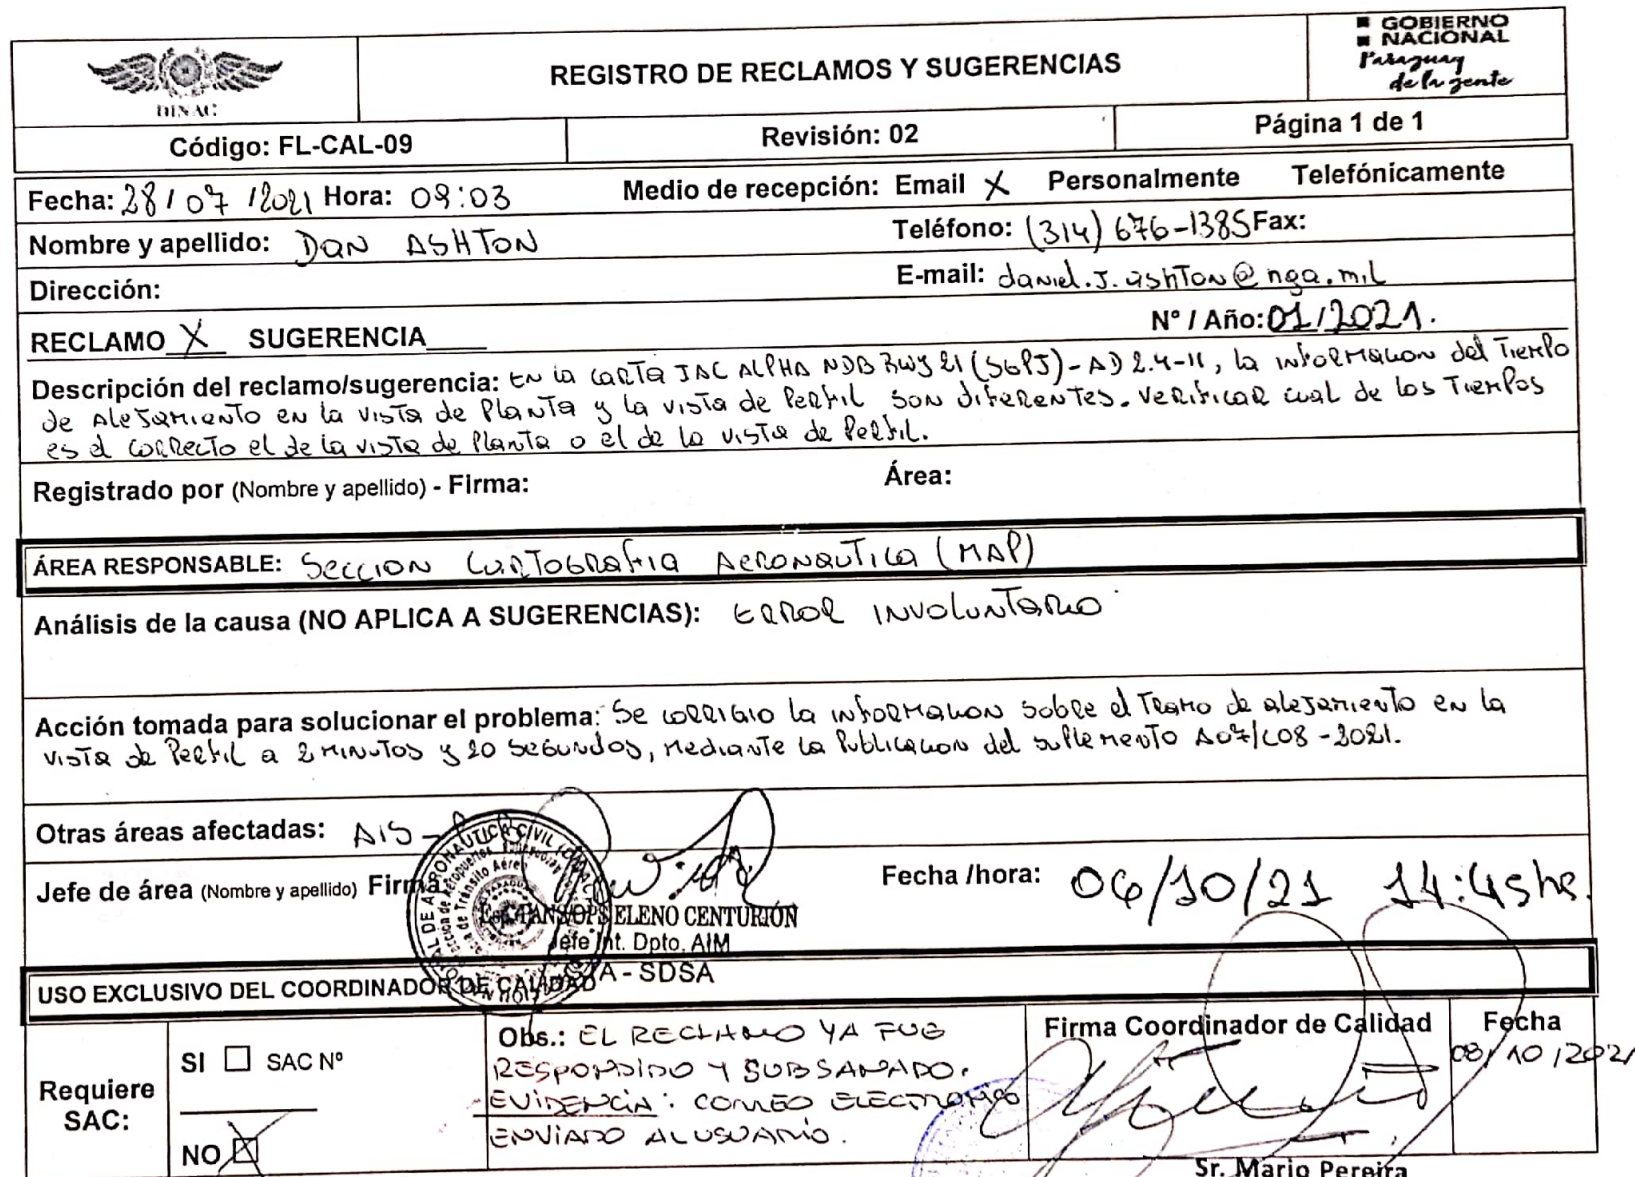 DINAC
REGISTRO DE RECLAMOS Y SUGERENCIAS
GOBIERNO
NACIONAL
Paraguay
de la gente
Código: FL-CAL-09
Revisión: 02
Página 1 de 1
Fecha: 28/07/2021 Hora: 09:03 Medio de recepción: Email X Personalmente Telefónicamente
Nombre y apellido: DAN ASHTON Teléfono: (314) 676-1385 Fax:
Dirección: E-mail: daniel.J.ashton@nga.mil
RECLAMO X SUGERENCIA____ N° / Año: 01/2021.
Descripción del reclamo/sugerencia: EN la CARTA IAC ALPHA NDB RWY 21 (SGPJ) - AD 2.4-11, la informacion del Tiempo
de Alejamiento en la vista de Planta y la vista de Perfil son diferentes. verificar cual de los Tiempos
es el correcto el de la vista de Planta o el de la vista de Perfil.
Registrado por (Nombre y apellido) - Firma: Área:
ÁREA RESPONSABLE: Seccion Cartografia Aeronautica (MAP)
Análisis de la causa (NO APLICA A SUGERENCIAS): ERROR INVOLUNTARIO
Acción tomada para solucionar el problema: Se corrigio la informacion sobre el Tramo de alejamiento en la
vista de Perfil a 2 minutos y 20 segundos, mediante la Publicacion del suplemento A07/C08-2021.
Otras áreas afectadas: AIS -
Jefe de área (Nombre y apellido) Firma: Fecha /hora: 06/10/21 14:45hs.
ELENO CENTURIÓN
Jefe Int. Dpto. AIM
- SDSA
USO EXCLUSIVO DEL COORDINADOR DE CALIDAD
Requiere
SAC:
SI ☐ SAC Nº
NO ☒
Obs.: EL RECLAMO YA FUE
RESPONDIDO Y SUBSANADO.
EVIDENCIA: CORREO ELECTRONICO
ENVIADO AL USUARIO.
Firma Coordinador de Calidad
Fecha
08/10/2021
Sr. Mario Pereira